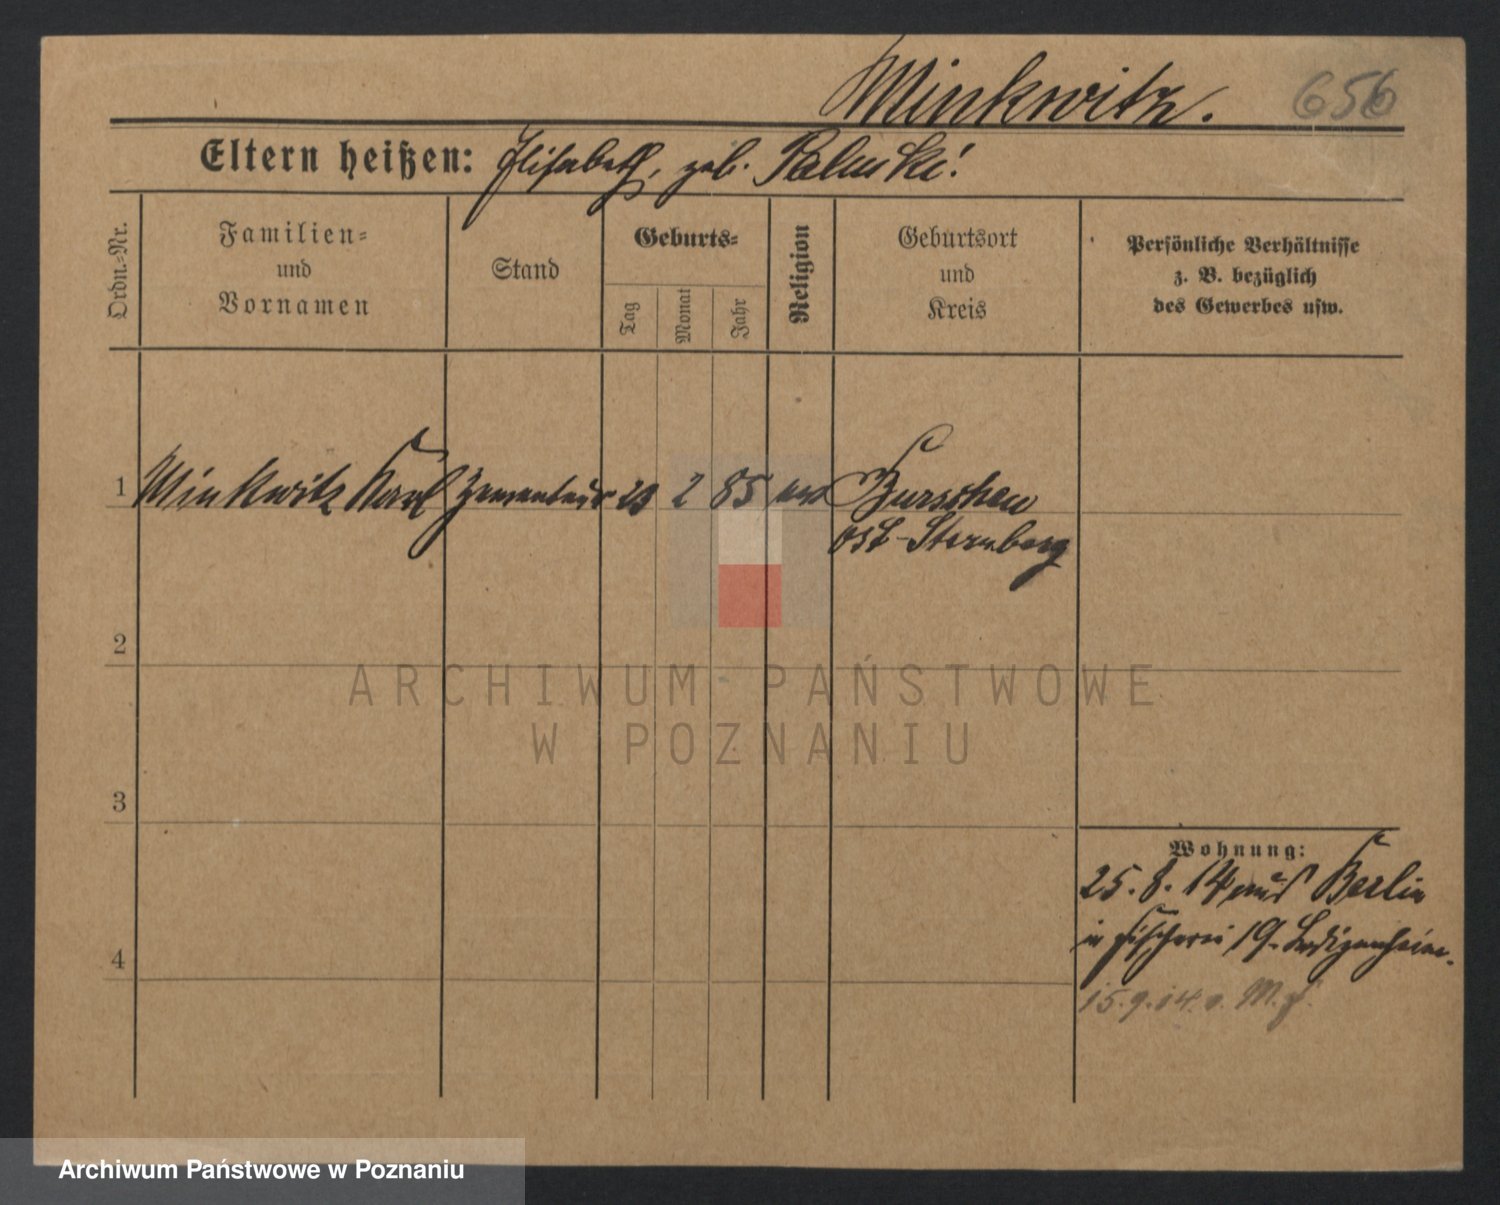 Minkwitz. 656
Eltern heißen: Elisabeth, geb. Paluski.
Ordn.-Nr.
Familien-
und
Vornamen
Stand
Geburts-
Tag
Monat
Jahr
Religion
Geburtsort
und
Kreis
Persönliche Verhältnisse
z. B. bezüglich
des Gewerbes usw.
1 Minkwitz Karl Zementeur 23 2 85 Burschen
Ost-Sternberg
2
3
4
Wohnung:
25.8.14 aus Berlin
in Fischerei 19. Ledigenheim.
15.9.14
ARCHIWUM PAŃSTWOWE
W POZNANIU
Archiwum Państwowe w Poznaniu